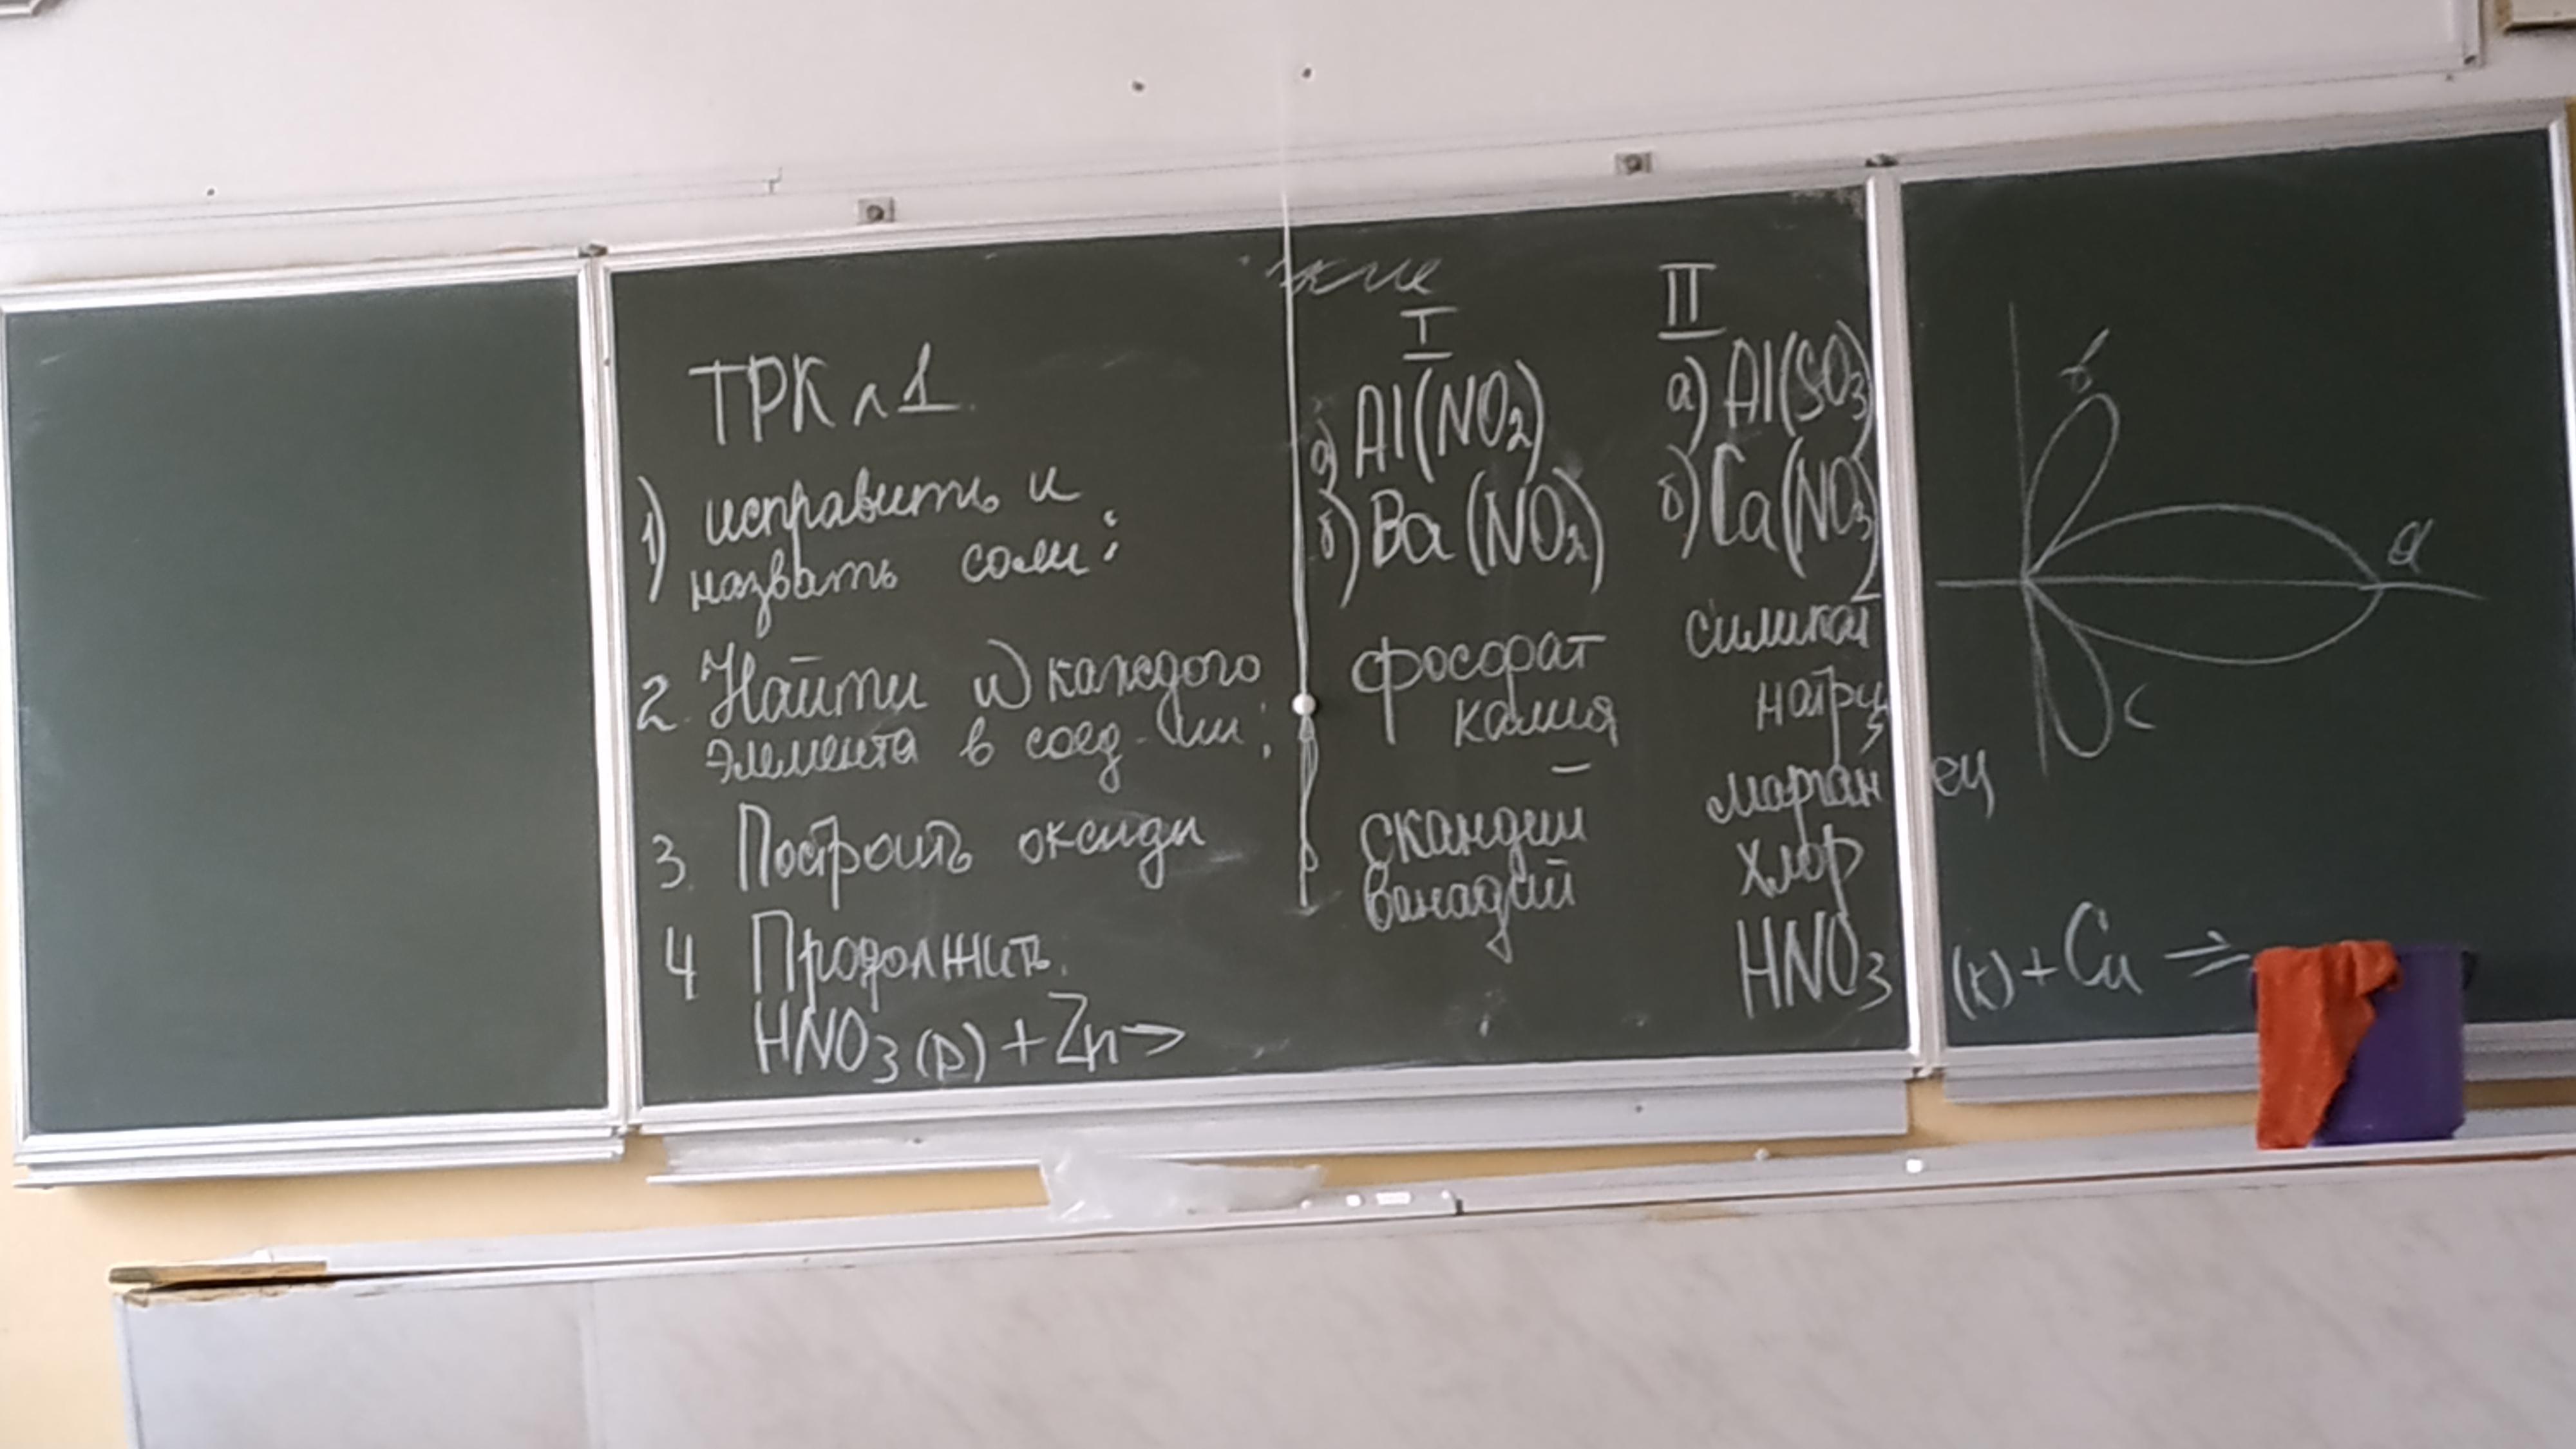 ТРК л 1
1) исправить и
назвать соли:
2. Найти ω каждого
элемента в соед-ии:
3. Построить оксиды
4 Продолжить.
HNO3(р) + Zn→
I
а) Al(NO2)
б) Ba(NO2)
фосорат
калия
скандий
ванадий
II
а) Al(SO3)
б) Ca(NO3)2
силикат
натрия
марганец
хлор
HNO3 (к) + Cu ⇒
b
a
c